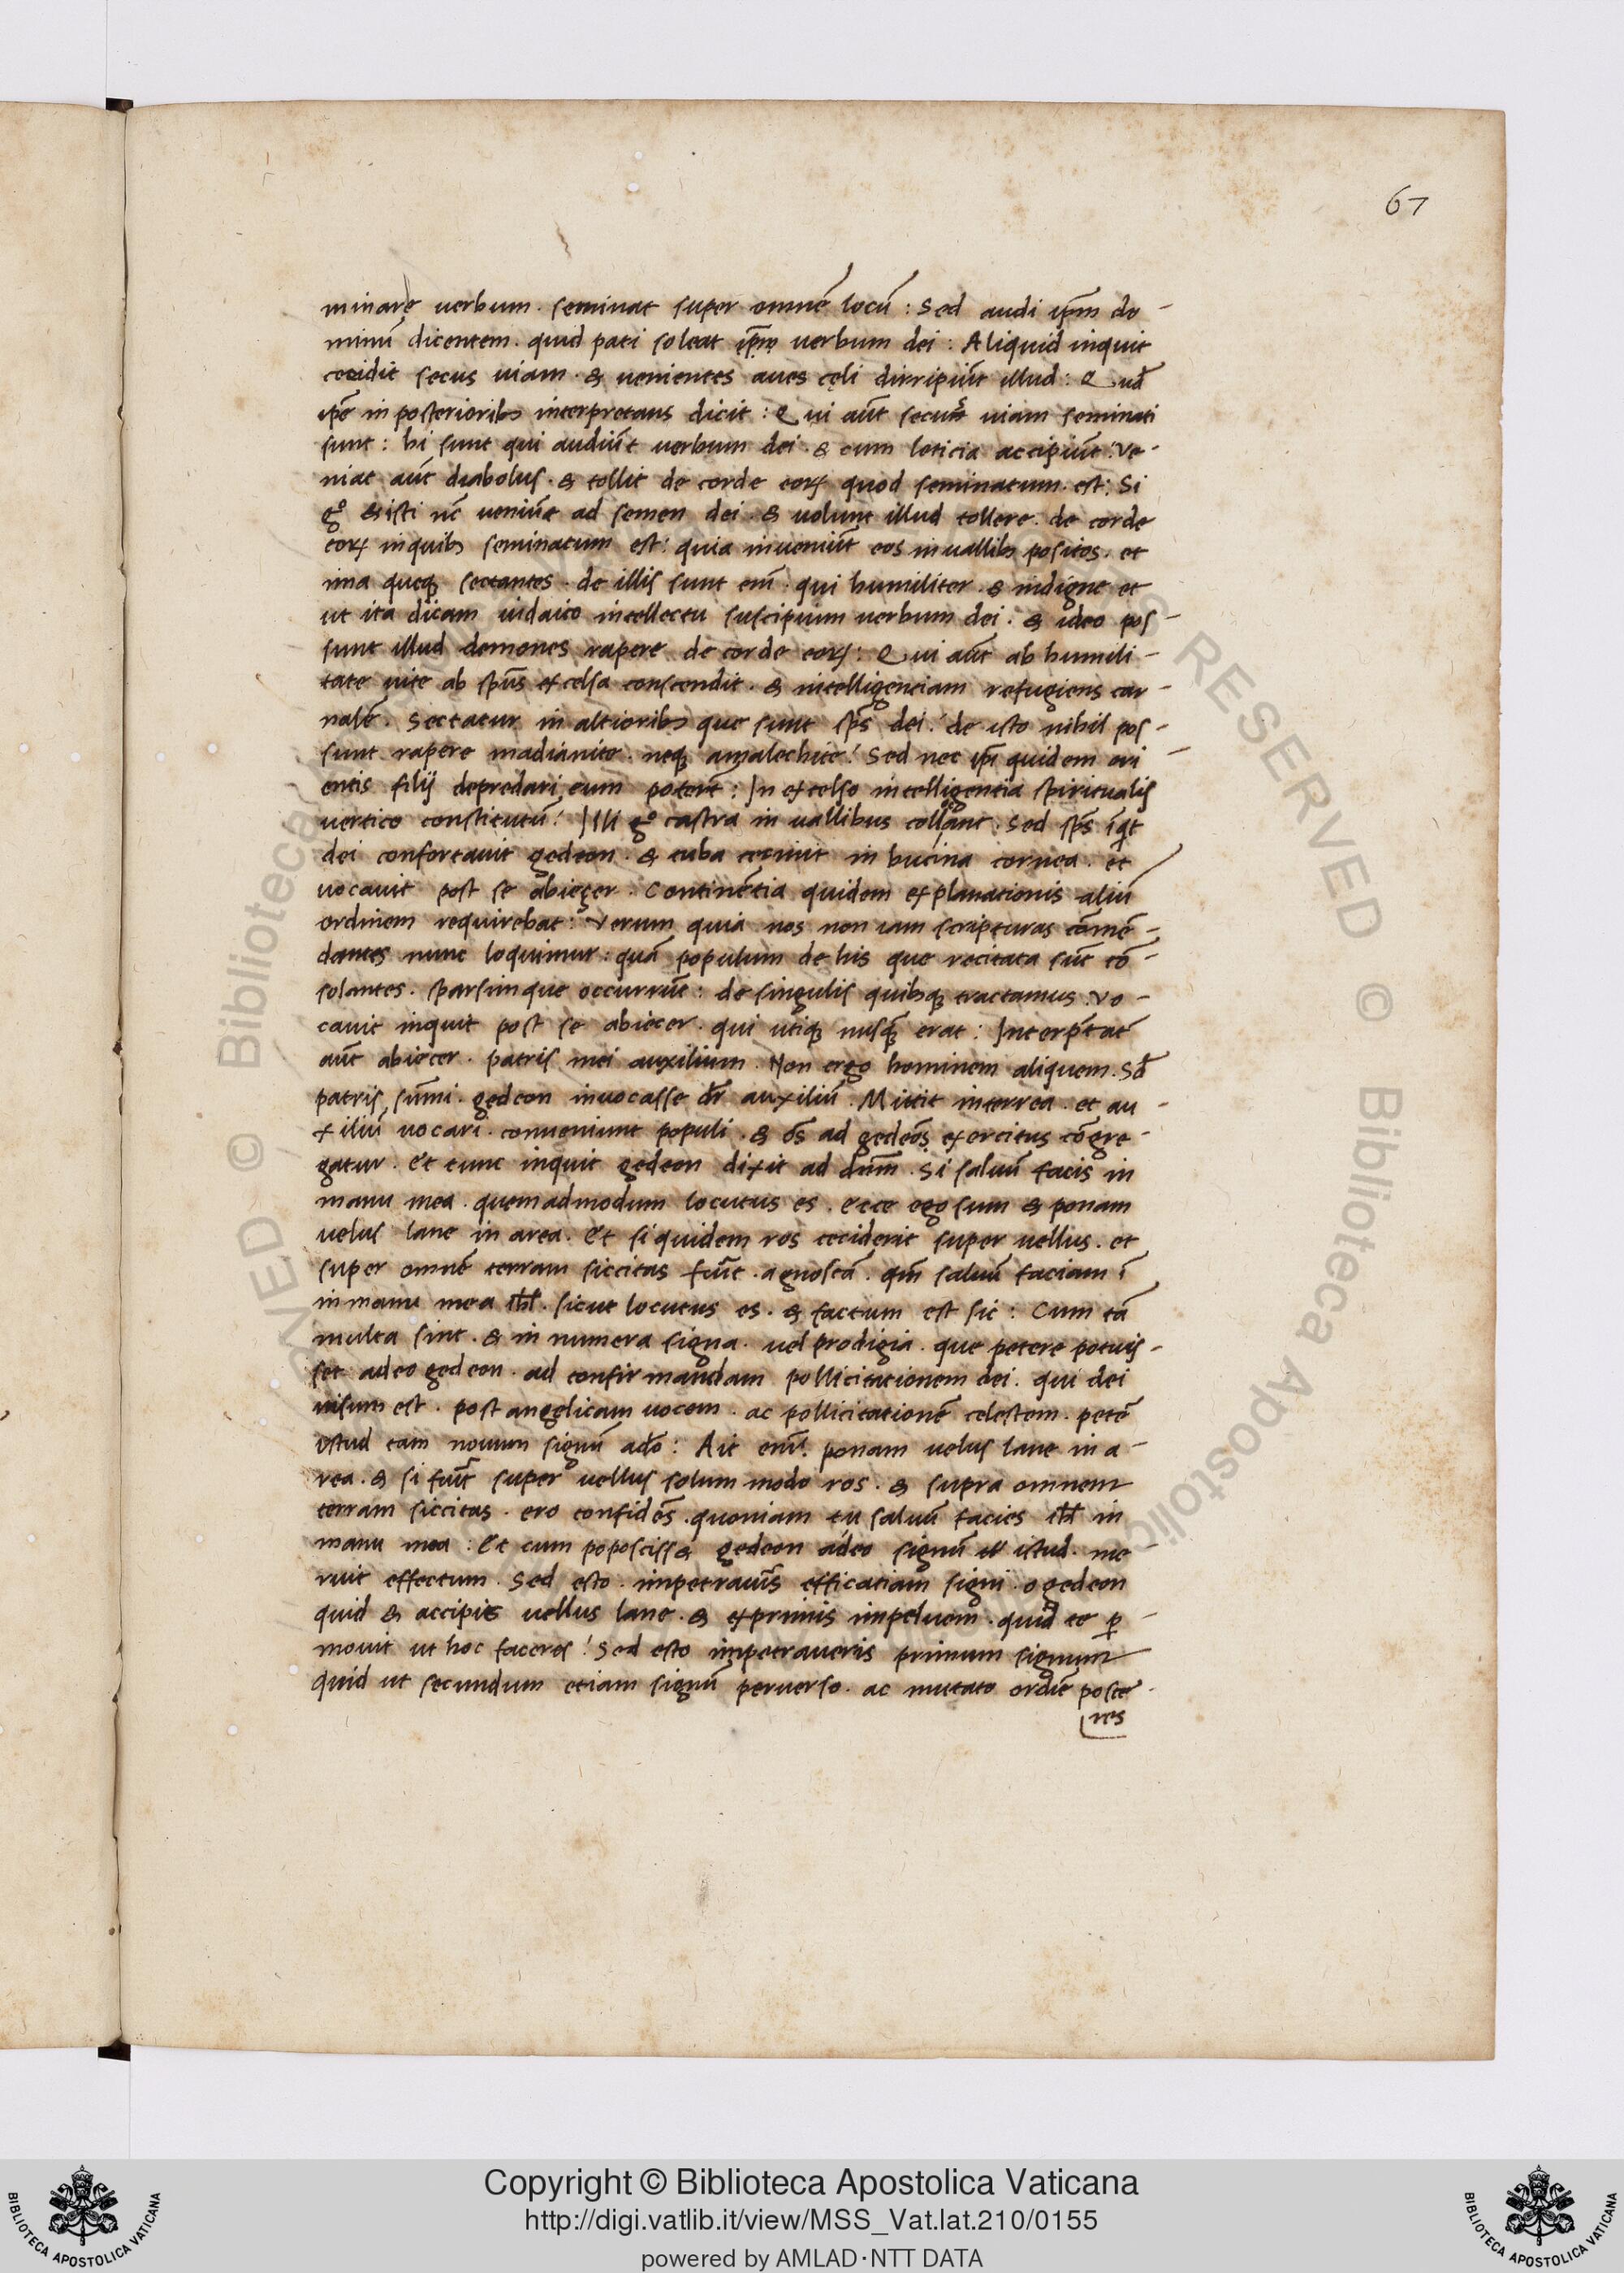 67
minare uerbum. seminat super omnē locū: Sed audi ip̄m do-
minū dicentem. quid pati soleat ip̄m uerbum dei: Aliquid inquit
cecidit secus uiam. & uenientes aues cęli dirripiūt illud: Qud̄
ip̄e in posteriorib; interpretans dicit: Qui aūt secus uiam seminati
sunt: hi sunt qui audiūt uerbum dei. & cum leticia accipiūt. Ve-
niat aūt diabolus. & tollit de corde eoꝝ quod seminatum. est: Si
gº & isti nc̄ ueniūt ad semen dei. & uolunt illud tollere. de corde
eoꝝ inquib; seminatum est: quia inueniūt eos inuallib; positos. et
ima queqꝫ sectantes. de illis sunt eni̅. qui humiliter. & indigne et
ut ita dicam iudaico intellectu suscipium uerbum dei. & ideo pos-
sunt illud demones rapere de corde eoꝝ: Qui aūt ab humili-
tate uite ab sp̄us excelsa conscendit. & intelligentiam refugiens car-
nalē. Sectatur in altiorib; que sunt sp̄s dei. de isto nihil pos-
sunt rapere madianite. neqꝫ amalechite. Sed nec ip̄i quidem ori-
entis filij depredari eum poterūt: In excelso intelligentia spiritualis
uertice constitutū. Illi gº castra in uallibus collocant. Sed sp̄s īqt
dei confortauit gedeon. & tuba cecinit in bucina cornea. et
uocauit post se abiezer. Continētia quidem explanationis aliū
ordinem requirebat: Verum quia nos non iam scripturas cōmē-
dantes nunc loquimur: quā populum de his que recitata sūt cō-
solantes. sparsimque occurrūt: de singulis quibsqꝫ tractamus. Vo-
cauit inquit post se abiecer. qui utiqꝫ nusqꝫ erat: Interp̄tat̄
aūt abiecer. patris mei auxilium. Non ergo hominem aliquem. Sd̄
patris sūmi. gedeon inuocasse dr̄ auxiliū. Mittit interrea. et au-
xiliū uocari. conueniunt populi. & ōs ad gedeōs exercitus cōgre-
gatur. Et tunc inquit gedeon dixit ad dn̄m. Si saluū facis in
manu mea. quemadmodum locutus es. Ecce ego sum & ponam
uelus lane in area. Et si quidem ros ceciderit super uellus. et
super omnē terram siccitas fuīt. agnoscā. qm̄ saluū faciam ī
inmanu mea isrl̄. sicut locutus es. & factum est sic: Cum tā
multa sint. & in numera signa. uel prodigia. que petere potuis-
set adeo gedeon. ad confirmandam pollicitationem dei. qui dei
uisum est. post angelicam uocem. ac pollicitationē celestem. petē
istud tam nouum signū ado: Ait eni̅. ponam uelus lane in a-
rea. & si fuīt super uellus solum modo ros. & supra omnem
terram siccitas. ero confidēs. quoniam tu saluū facies isrl̄ in
manu mea: Et cum poposciss& gedeon adeo signū istud. me
ruit effectum. Sed esto. impetrauīs efficatiam signi. o gedeon
quid & accipis uellus lane. & exprimis inpeluem. quid te ꝑ-
mouit ut hoc faceres! Sed esto impetraueris primum signum
quid ut secundum etiam signū peruerso. ac mutato ordīe poste
res
Copyright © Biblioteca Apostolica Vaticana
http://digi.vatlib.it/view/MSS_Vat.lat.210/0155
powered by AMLAD·NTT DATA